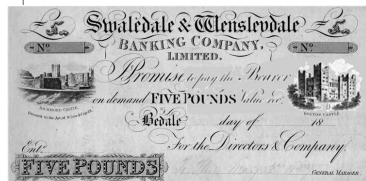 £5. Swaledale & Wensleydale £5.
BANKING COMPANY,
Nº LIMITED. Nº
Promise to pay the Bearer
on demand FIVE POUNDS Value rec.
RICHMOND CASTLE.
BOLTON CASTLE
Bedale day of 18
Ent. For the Directors & Company.
FIVE POUNDS
GENERAL MANAGER.